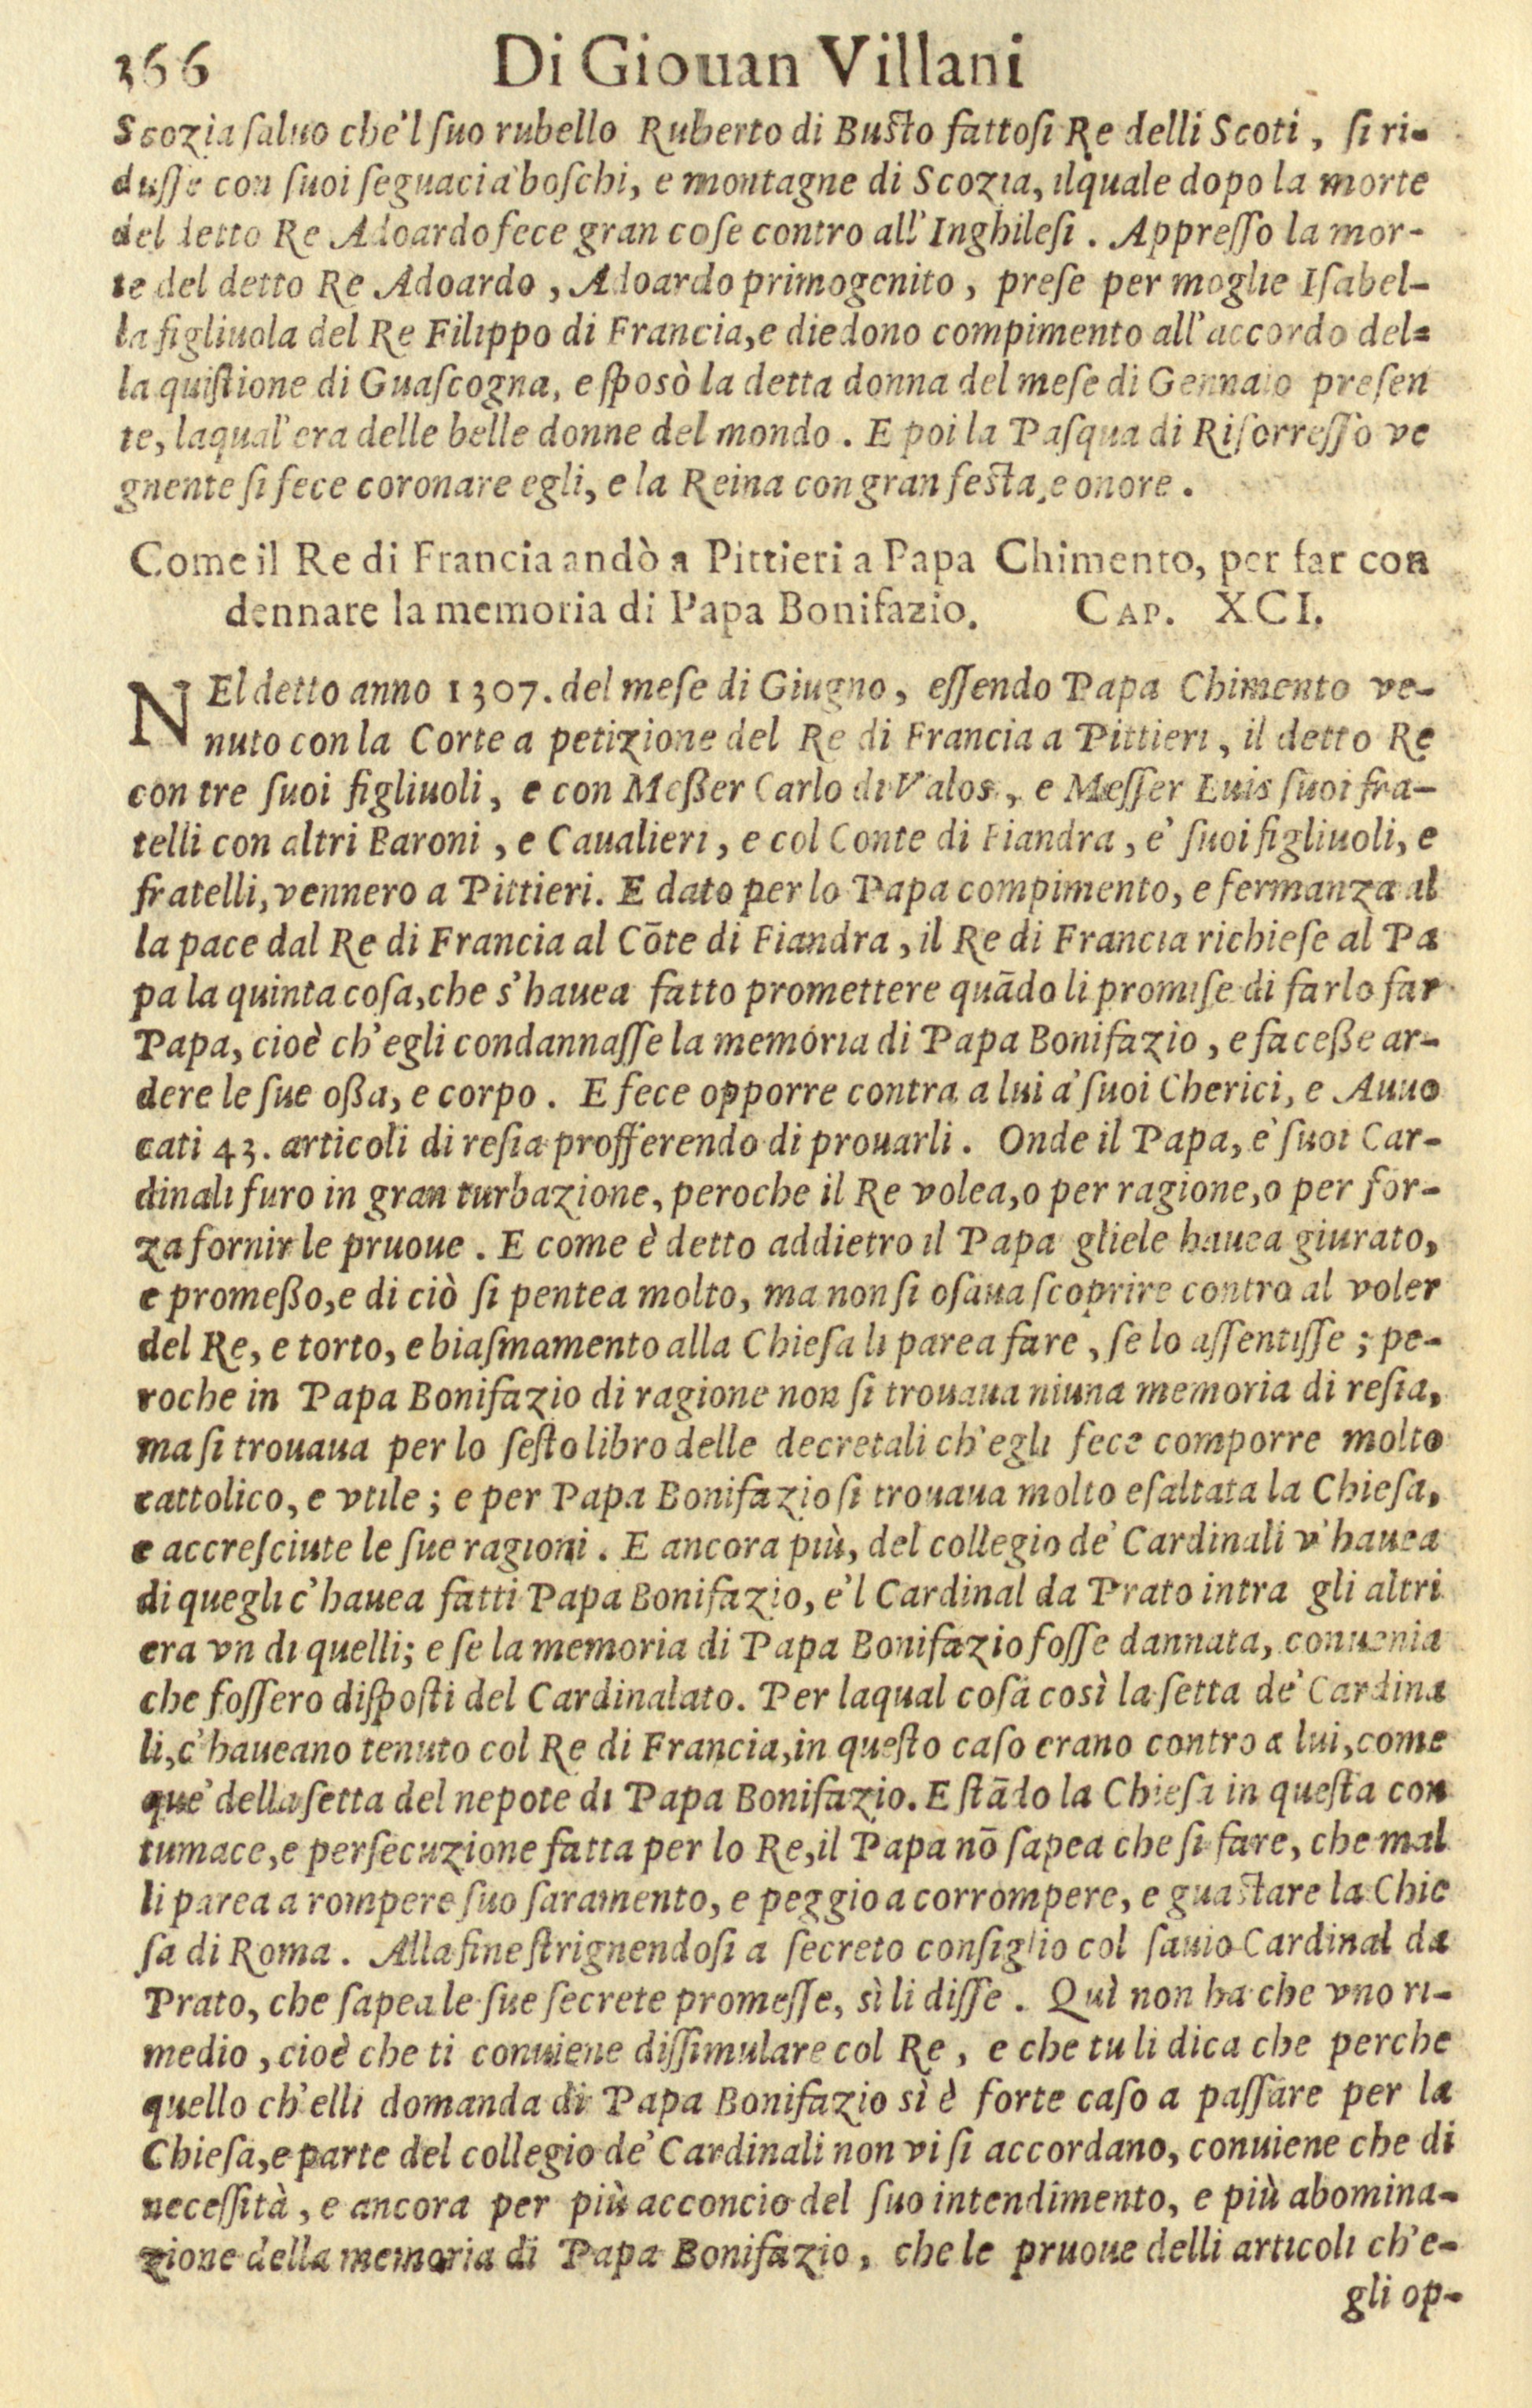 366 Di Giouan Villani
Scozia saluo che'l suo rubello Ruberto di Busto fattosi Re delli Scoti, si ri-
dusse con suoi seguaci a' boschi, e montagne di Scozia, ilquale dopo la morte
del detto Re Adoardo fece gran cose contro all' Inghilesi. Appresso la mor-
te del detto Re Adoardo, Adoardo primogenito, prese per moglie Isabel-
la figliuola del Re Filippo di Francia, e diedono compimento all'accordo del-
la quistione di Guascogna, e sposò la detta donna del mese di Gennaio presen
te, laqual' era delle belle donne del mondo. E poi la Pasqua di Risorresso ve
gnente si fece coronare egli, e la Reina con gran festa, e onore.
Come il Re di Francia andò a Pittieri a Papa Chimento, per far con
dennare la memoria di Papa Bonifazio. CAP. XCI.
NEl detto anno 1307. del mese di Giugno, essendo Papa Chimento ve-
nuto con la Corte a petizione del Re di Francia a Pittieri, il detto Re
con tre suoi figliuoli, e con Meßer Carlo di Valos, e Messer Luis suoi fra-
telli con altri Baroni, e Caualieri, e col Conte di Fiandra, e' suoi figliuoli, e
fratelli, vennero a Pittieri. E dato per lo Papa compimento, e fermanza al
la pace dal Re di Francia al Cōte di Fiandra, il Re di Francia richiese al Pa
pa la quinta cosa, che s'hauea fatto promettere quādo li promise di farlo far
Papa, cioè ch'egli condannasse la memoria di Papa Bonifazio, e faceße ar-
dere le sue oßa, e corpo. E fece opporre contra a lui a' suoi Cherici, e Auuo
cati 43. articoli di resia profferendo di prouarli. Onde il Papa, e' suoi Car-
dinali furo in gran turbazione, peroche il Re volea, o per ragione, o per for-
za fornir le pruoue. E come è detto addietro il Papa gliele hauea giurato,
e promeßo, e di ciò si pentea molto, ma non si osaua scoprire contro al voler
del Re, e torto, e biasmamento alla Chiesa li parea fare, se lo assentisse; pe-
roche in Papa Bonifazio di ragione non si trouaua niuna memoria di resia,
ma si trouaua per lo sesto libro delle decretali ch'egli fece comporre molto
cattolico, e vtile; e per Papa Bonifazio si trouaua molto esaltata la Chiesa,
e accresciute le sue ragioni. E ancora più, del collegio de' Cardinali v'hauea
di quegli c'hauea fatti Papa Bonifazio, e'l Cardinal da Prato intra gli altri
era vn di quelli; e se la memoria di Papa Bonifazio fosse dannata, conuenia
che fossero disposti del Cardinalato. Per laqual cosa così la setta de' Cardina
li, c'haueano tenuto col Re di Francia, in questo caso erano contro a lui, come
que' della setta del nepote di Papa Bonifazio. E stādo la Chiesa in questa con
tumace, e persecuzione fatta per lo Re, il Papa nō sapea che si fare, che mal
li parea a rompere suo saramento, e peggio a corrompere, e guastare la Chie
sa di Roma. Alla fine strignendosi a secreto consiglio col sauio Cardinal da
Prato, che sapea le sue secrete promesse, sì li disse. Quì non ha che vno ri-
medio, cioè che ti conuiene dissimulare col Re, e che tu li dica che perche
quello ch'elli domanda di Papa Bonifazio sì è forte caso a passare per la
Chiesa, e parte del collegio de' Cardinali non vi si accordano, conuiene che di
necessità, e ancora per più acconcio del suo intendimento, e più abomina-
zione della memoria di Papa Bonifazio, che le pruoue delli articoli ch'e-
gli op-